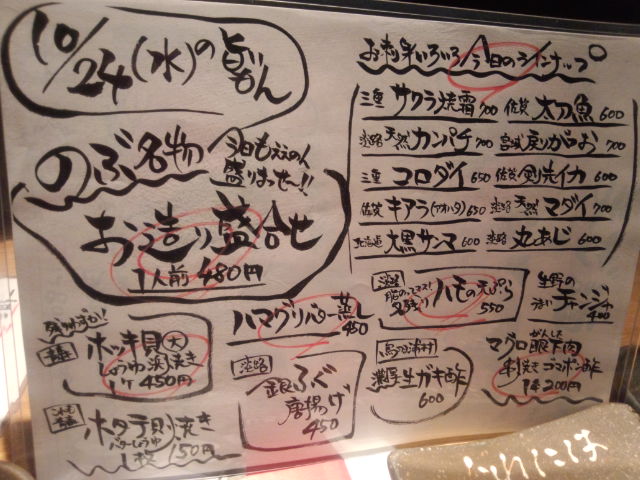 10/24(水)の
のぶ名物
今日もええの
盛りまっせ〜!!
お造り盛合せ
1人前480円
お刺身いろいろ 今日のラインナップ
三重 サワラ焼霜 700
佐賀 太刀魚 600
淡路 天然 カンパチ 700
宮城 戻りがつお 700
三重 コロダイ 650
佐賀 剣先イカ 600
佐賀 キアラ(アオハタ) 650
淡路 天然 マダイ 700
北海道 大黒サンマ 600
淡路 丸あじ 600
ハマグリバター蒸し
450
淡路
ハモの天ぷら
550
生野の
チャンジャ
400
ホッキ貝(大)
しょうゆ浜焼き
1ケ 450円
ホタテ貝焼き
バターしょうゆ
1枚 150円
淡路
銀ふぐ
唐揚げ
450
濃厚生ガキ酢
600
マグロ眼下肉
がんした
ポン酢
200円